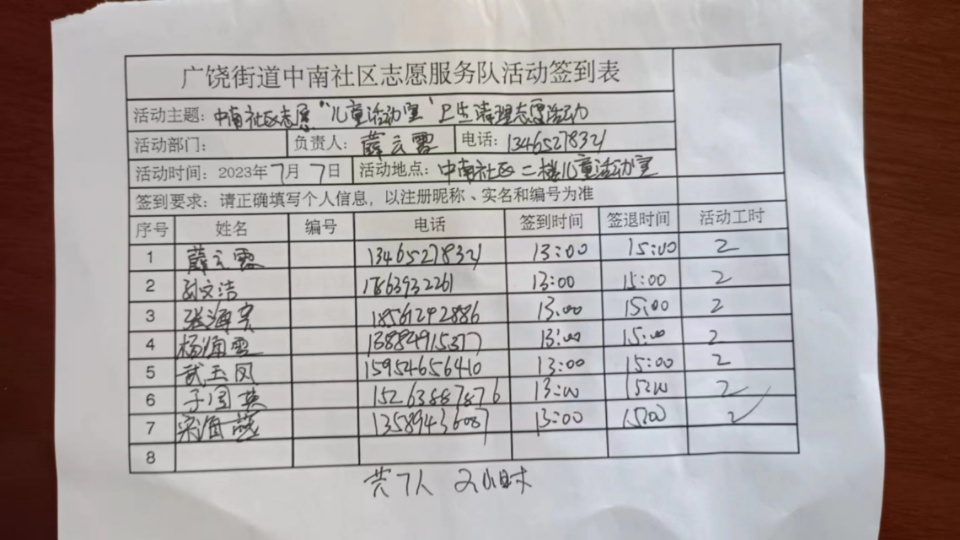 广饶街道中南社区志愿服务队活动签到表
活动主题：中南社区志愿“儿童活动室”卫生清理志愿活动
活动部门： 负责人：薛云霞 电话：13465278321
活动时间：2023年7月7日 活动地点：中南社区二楼儿童活动室
签到要求：请正确填写个人信息，以注册昵称、实名和编号为准
序号 姓名 编号 电话 签到时间 签退时间 活动工时
1 薛云霞 13465278321 13:00 15:00 2
2 孙文洁 13:00 15:00 2
3 18561292886 13:00 15:00 2
4 杨海霞 13884915377 13:00 15:00 2
5 武玉凤 15954656410 13:00 15:00 2
6 15263887876 13:00 15:00 2
7 宋海燕 13589436087 13:00 15:00 2
8
共7人 2小时